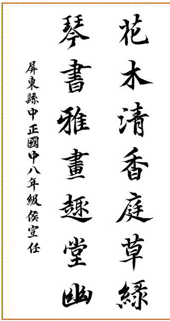 花木清香庭草綠
琴書雅畫趣堂幽
屏東縣中正國中八年級侯宣任